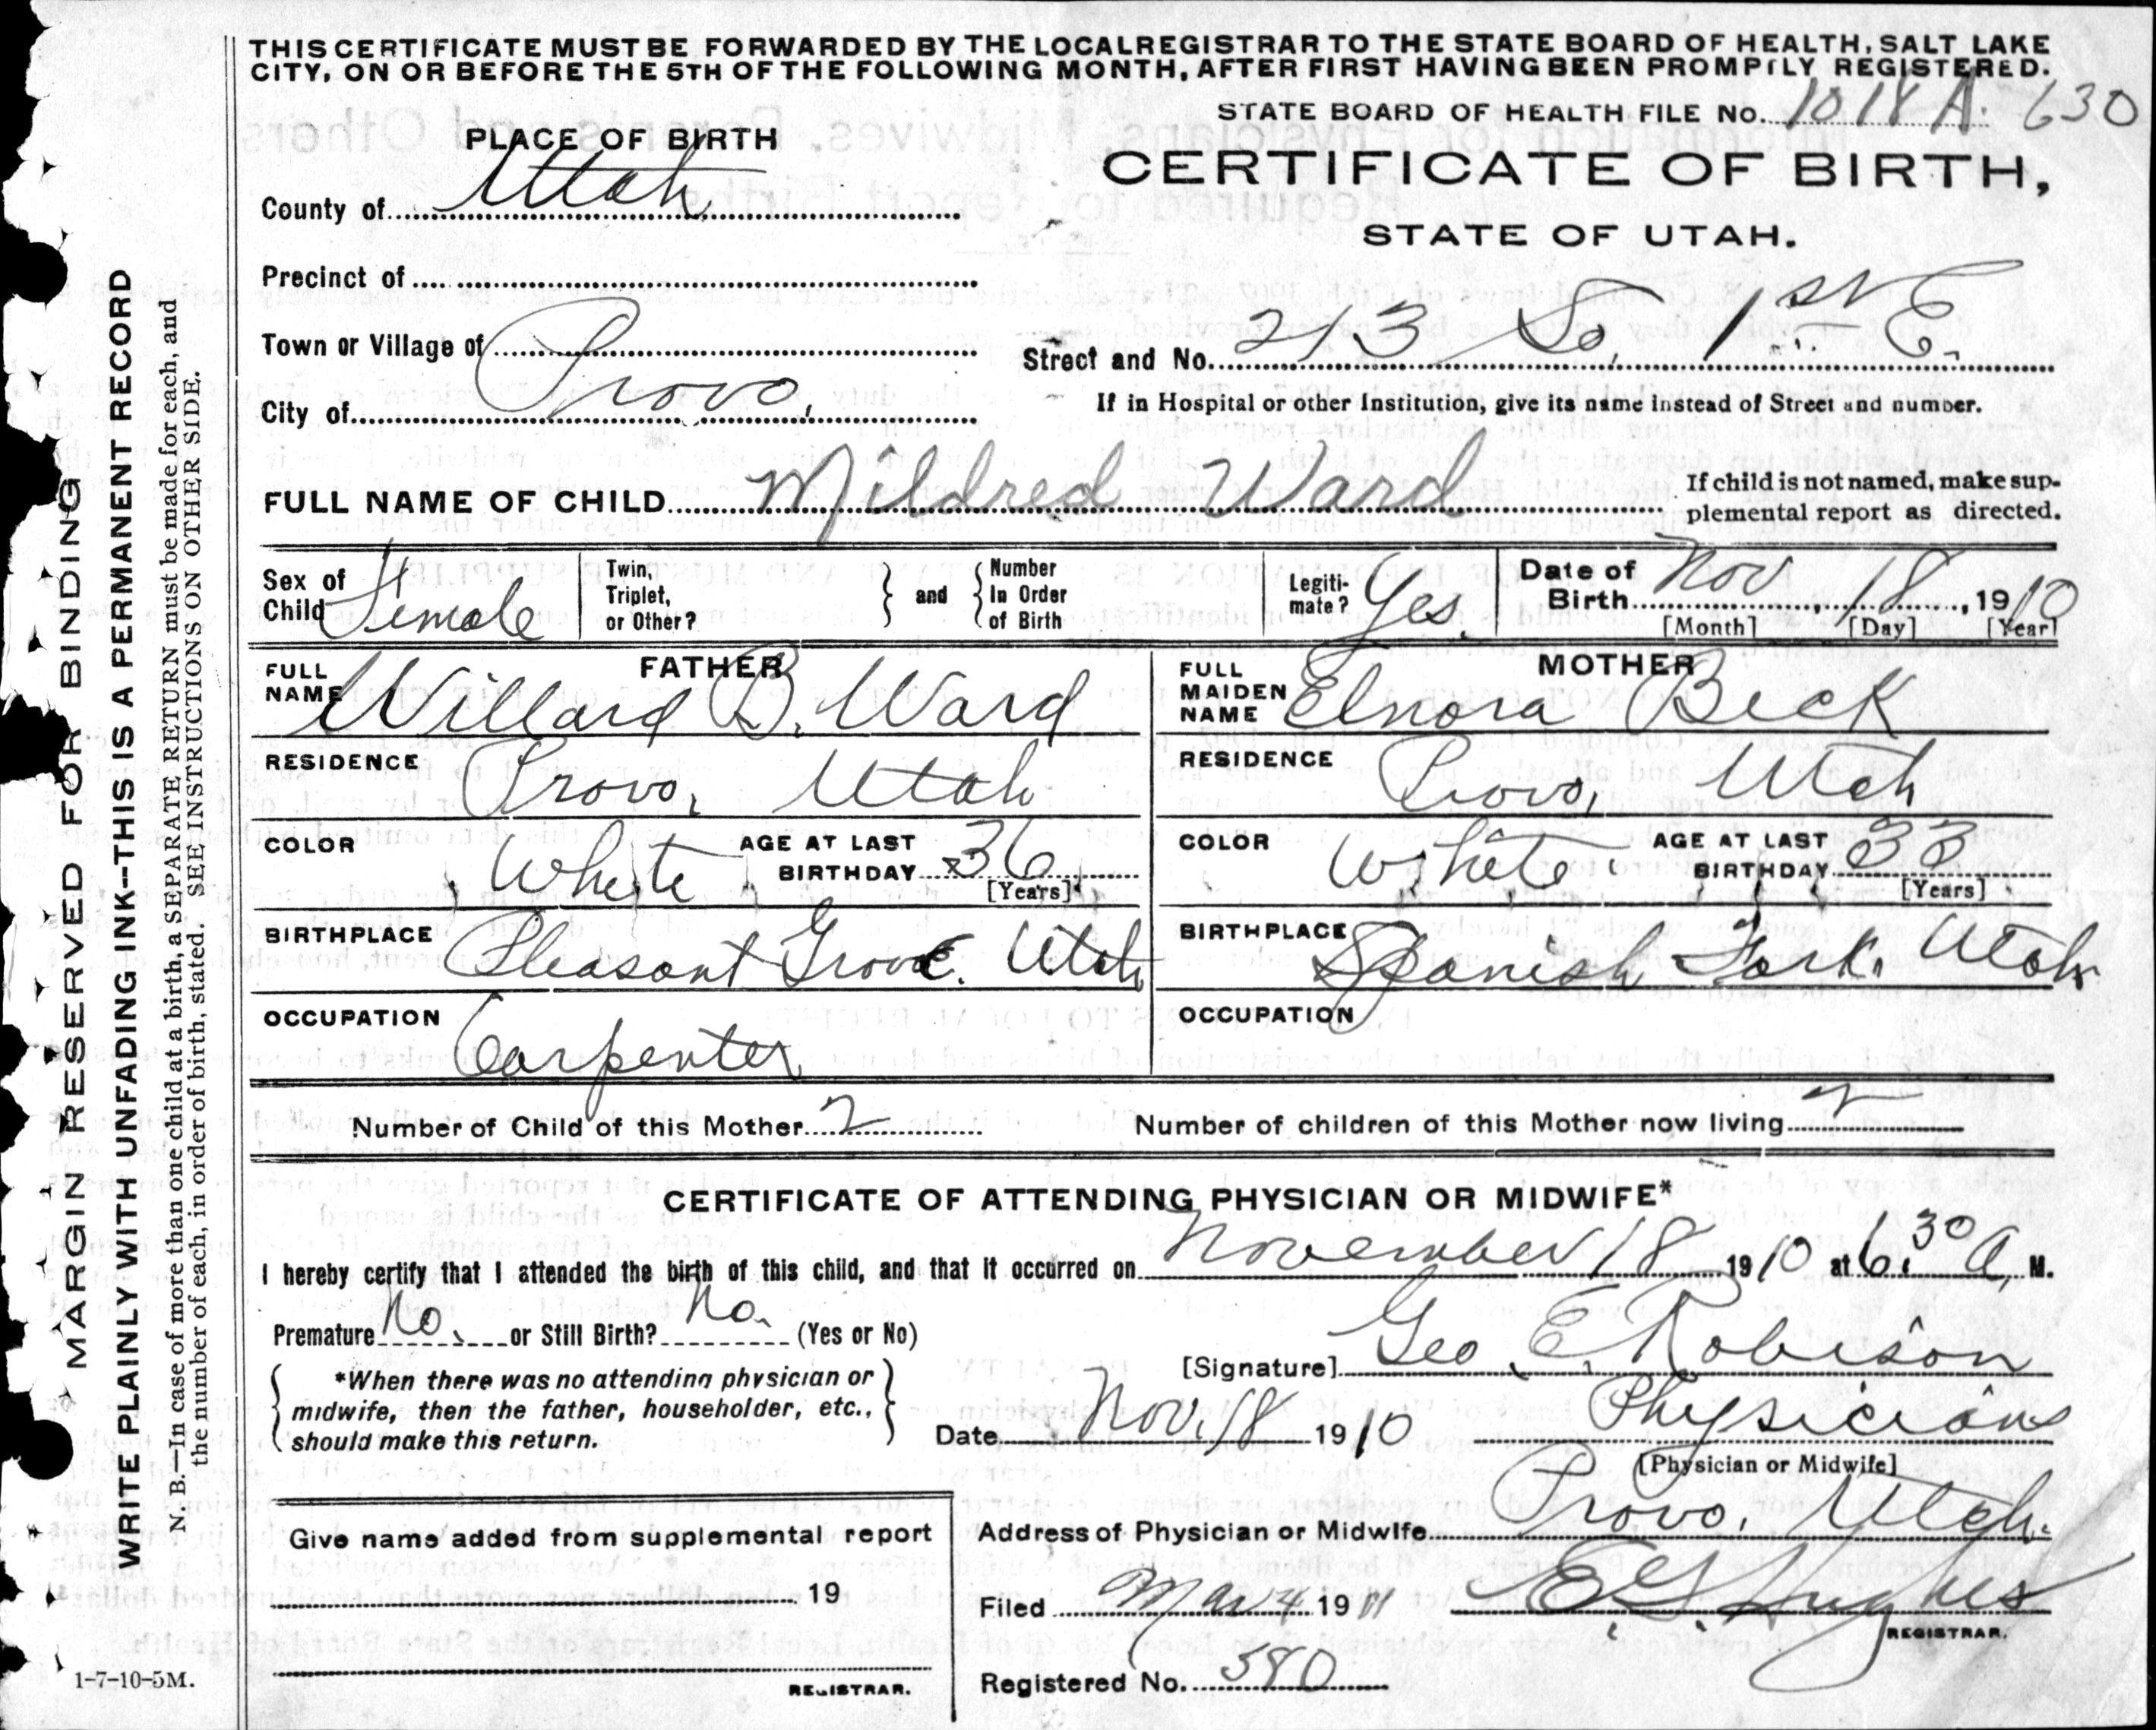 THIS CERTIFICATE MUST BE FORWARDED BY THE LOCAL REGISTRAR TO THE STATE BOARD OF HEALTH, SALT LAKE
CITY, ON OR BEFORE THE 5TH OF THE FOLLOWING MONTH, AFTER FIRST HAVING BEEN PROMPTLY REGISTERED.
STATE BOARD OF HEALTH FILE No. 1018 A. 630
PLACE OF BIRTH
CERTIFICATE OF BIRTH,
STATE OF UTAH.
County of Utah
Precinct of
Town or Village of
Street and No. 213 So. 1st E.
City of Provo,
If in Hospital or other Institution, give its name instead of Street and number.
FULL NAME OF CHILD Mildred Ward
If child is not named, make sup-
plemental report as directed.
Sex of Child Female
Twin, Triplet, or Other?
and
Number In Order of Birth
Legiti-mate? Yes.
Date of Birth Nov 18, 1910
[Month] [Day] [Year]
FATHER
FULL NAME Willard B. Ward
RESIDENCE Provo, Utah
COLOR White AGE AT LAST BIRTHDAY 36 [Years]
BIRTHPLACE Pleasant Grove. Utah
OCCUPATION Carpenter
MOTHER
FULL MAIDEN NAME Elnora Beck
RESIDENCE Provo, Utah
COLOR White AGE AT LAST BIRTHDAY 33 [Years]
BIRTHPLACE Spanish Fork. Utah
OCCUPATION
Number of Child of this Mother 2 Number of children of this Mother now living 2
CERTIFICATE OF ATTENDING PHYSICIAN OR MIDWIFE*
I hereby certify that I attended the birth of this child, and that it occurred on November 18 1910 at 6:30 A. M.
Premature No. or Still Birth? No. (Yes or No)
[Signature] Geo. E. Robison
*When there was no attending physician or
midwife, then the father, householder, etc.,
should make this return.
Date Nov. 18 1910 Physician
[Physician or Midwife]
Address of Physician or Midwife Provo, Utah.
Give name added from supplemental report
19
REGISTRAR.
Filed Mar 4 1911 E G Hughes
REGISTRAR.
Registered No. 580
1-7-10-5M.
MARGIN RESERVED FOR BINDING
WRITE PLAINLY WITH UNFADING INK--THIS IS A PERMANENT RECORD
N. B.—In case of more than one child at a birth, a SEPARATE RETURN must be made for each, and
the number of each, in order of birth, stated. SEE INSTRUCTIONS ON OTHER SIDE.